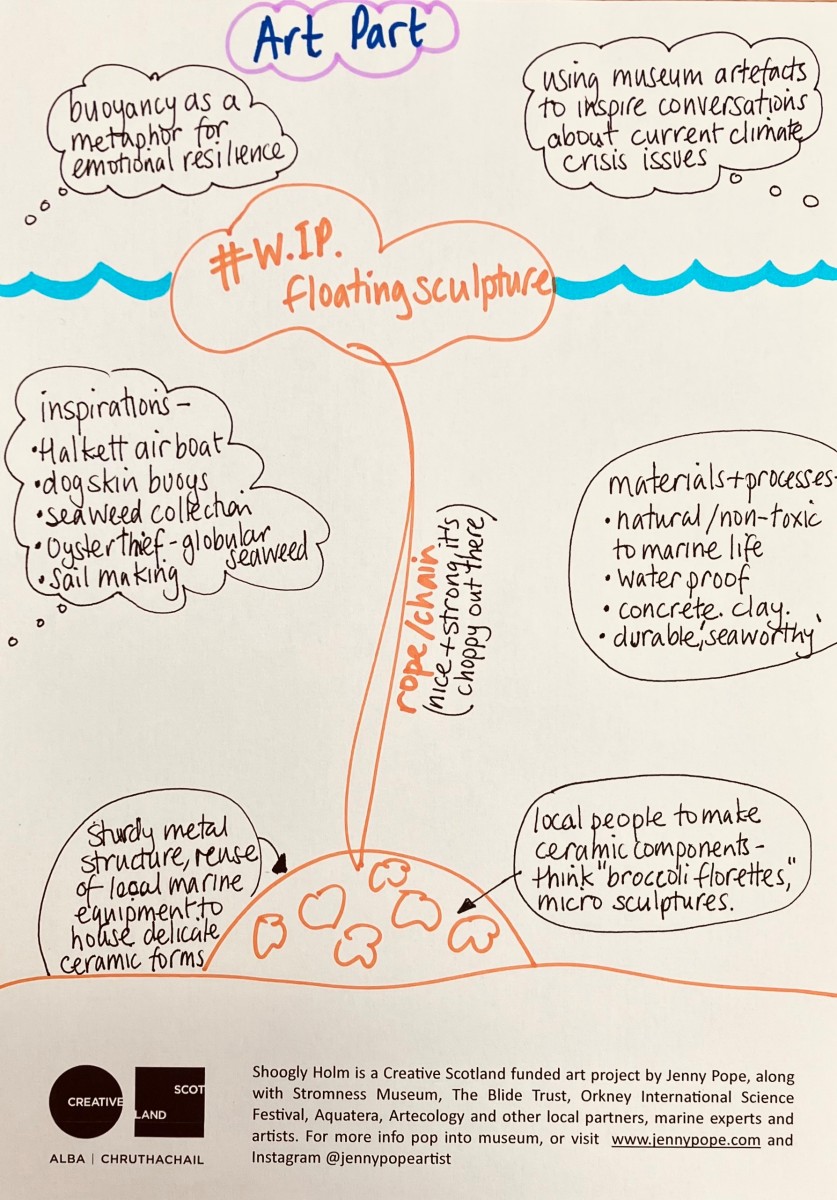 Art Part
buoyancy as a
metaphor for
emotional resilience
using museum artefacts
to inspire conversations
about current climate
crisis issues
#W.IP.
floating sculpture
inspirations -
•Halkett air boat
•dogskin buoys
•seaweed collection
•Oyster thief - globular
seaweed
•Sail making
materials + processes-
•natural/non-toxic
to marine life
•water proof
•concrete. clay.
•durable, 'seaworthy'
rope/chain
(nice + strong, it's
choppy out there)
Sturdy metal
structure, reuse
of local marine
equipment to
house delicate
ceramic forms
local people to make
ceramic components -
think "broccoli florettes,"
micro sculptures.
CREATIVE
SCOT
LAND
ALBA | CHRUTHACHAIL
Shoogly Holm is a Creative Scotland funded art project by Jenny Pope, along
with Stromness Museum, The Blide Trust, Orkney International Science
Festival, Aquatera, Artecology and other local partners, marine experts and
artists. For more info pop into museum, or visit www.jennypope.com and
Instagram @jennypopeartist